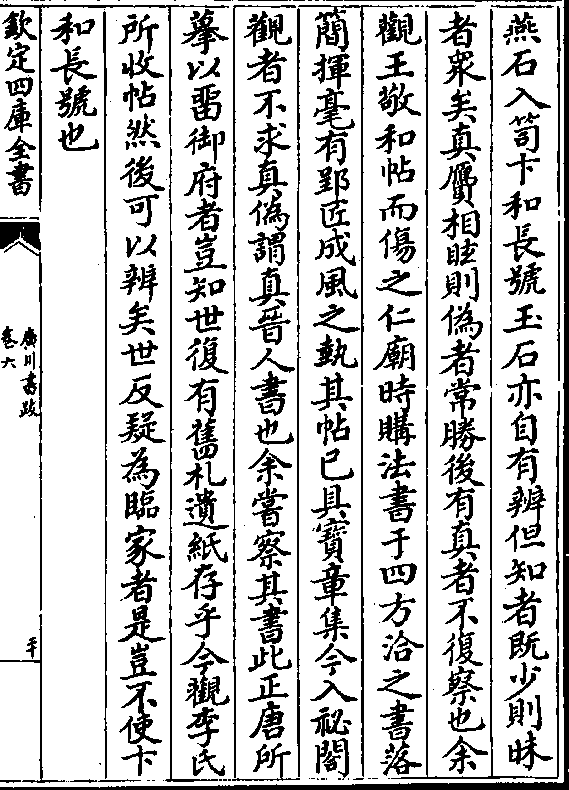 燕石入笥卞和長號玉石亦自有辨但知者既少則昧
者衆矣真贗相眩則偽者常勝後有真者不復察也余
觀王敬和帖而傷之仁廟時購法書于四方洽之書落
簡揮毫有郢匠成風之埶其帖已具寳章集今入祕閣
觀者不求真偽謂真晉人書也余嘗察其書此正唐所
摹以留御府者豈知世復有舊札遺紙存乎今觀李氏
所收帖然後可以辨矣世反疑為臨家者是豈不使卞
和長號也
欽定四庫全書
廣川書跋
卷六